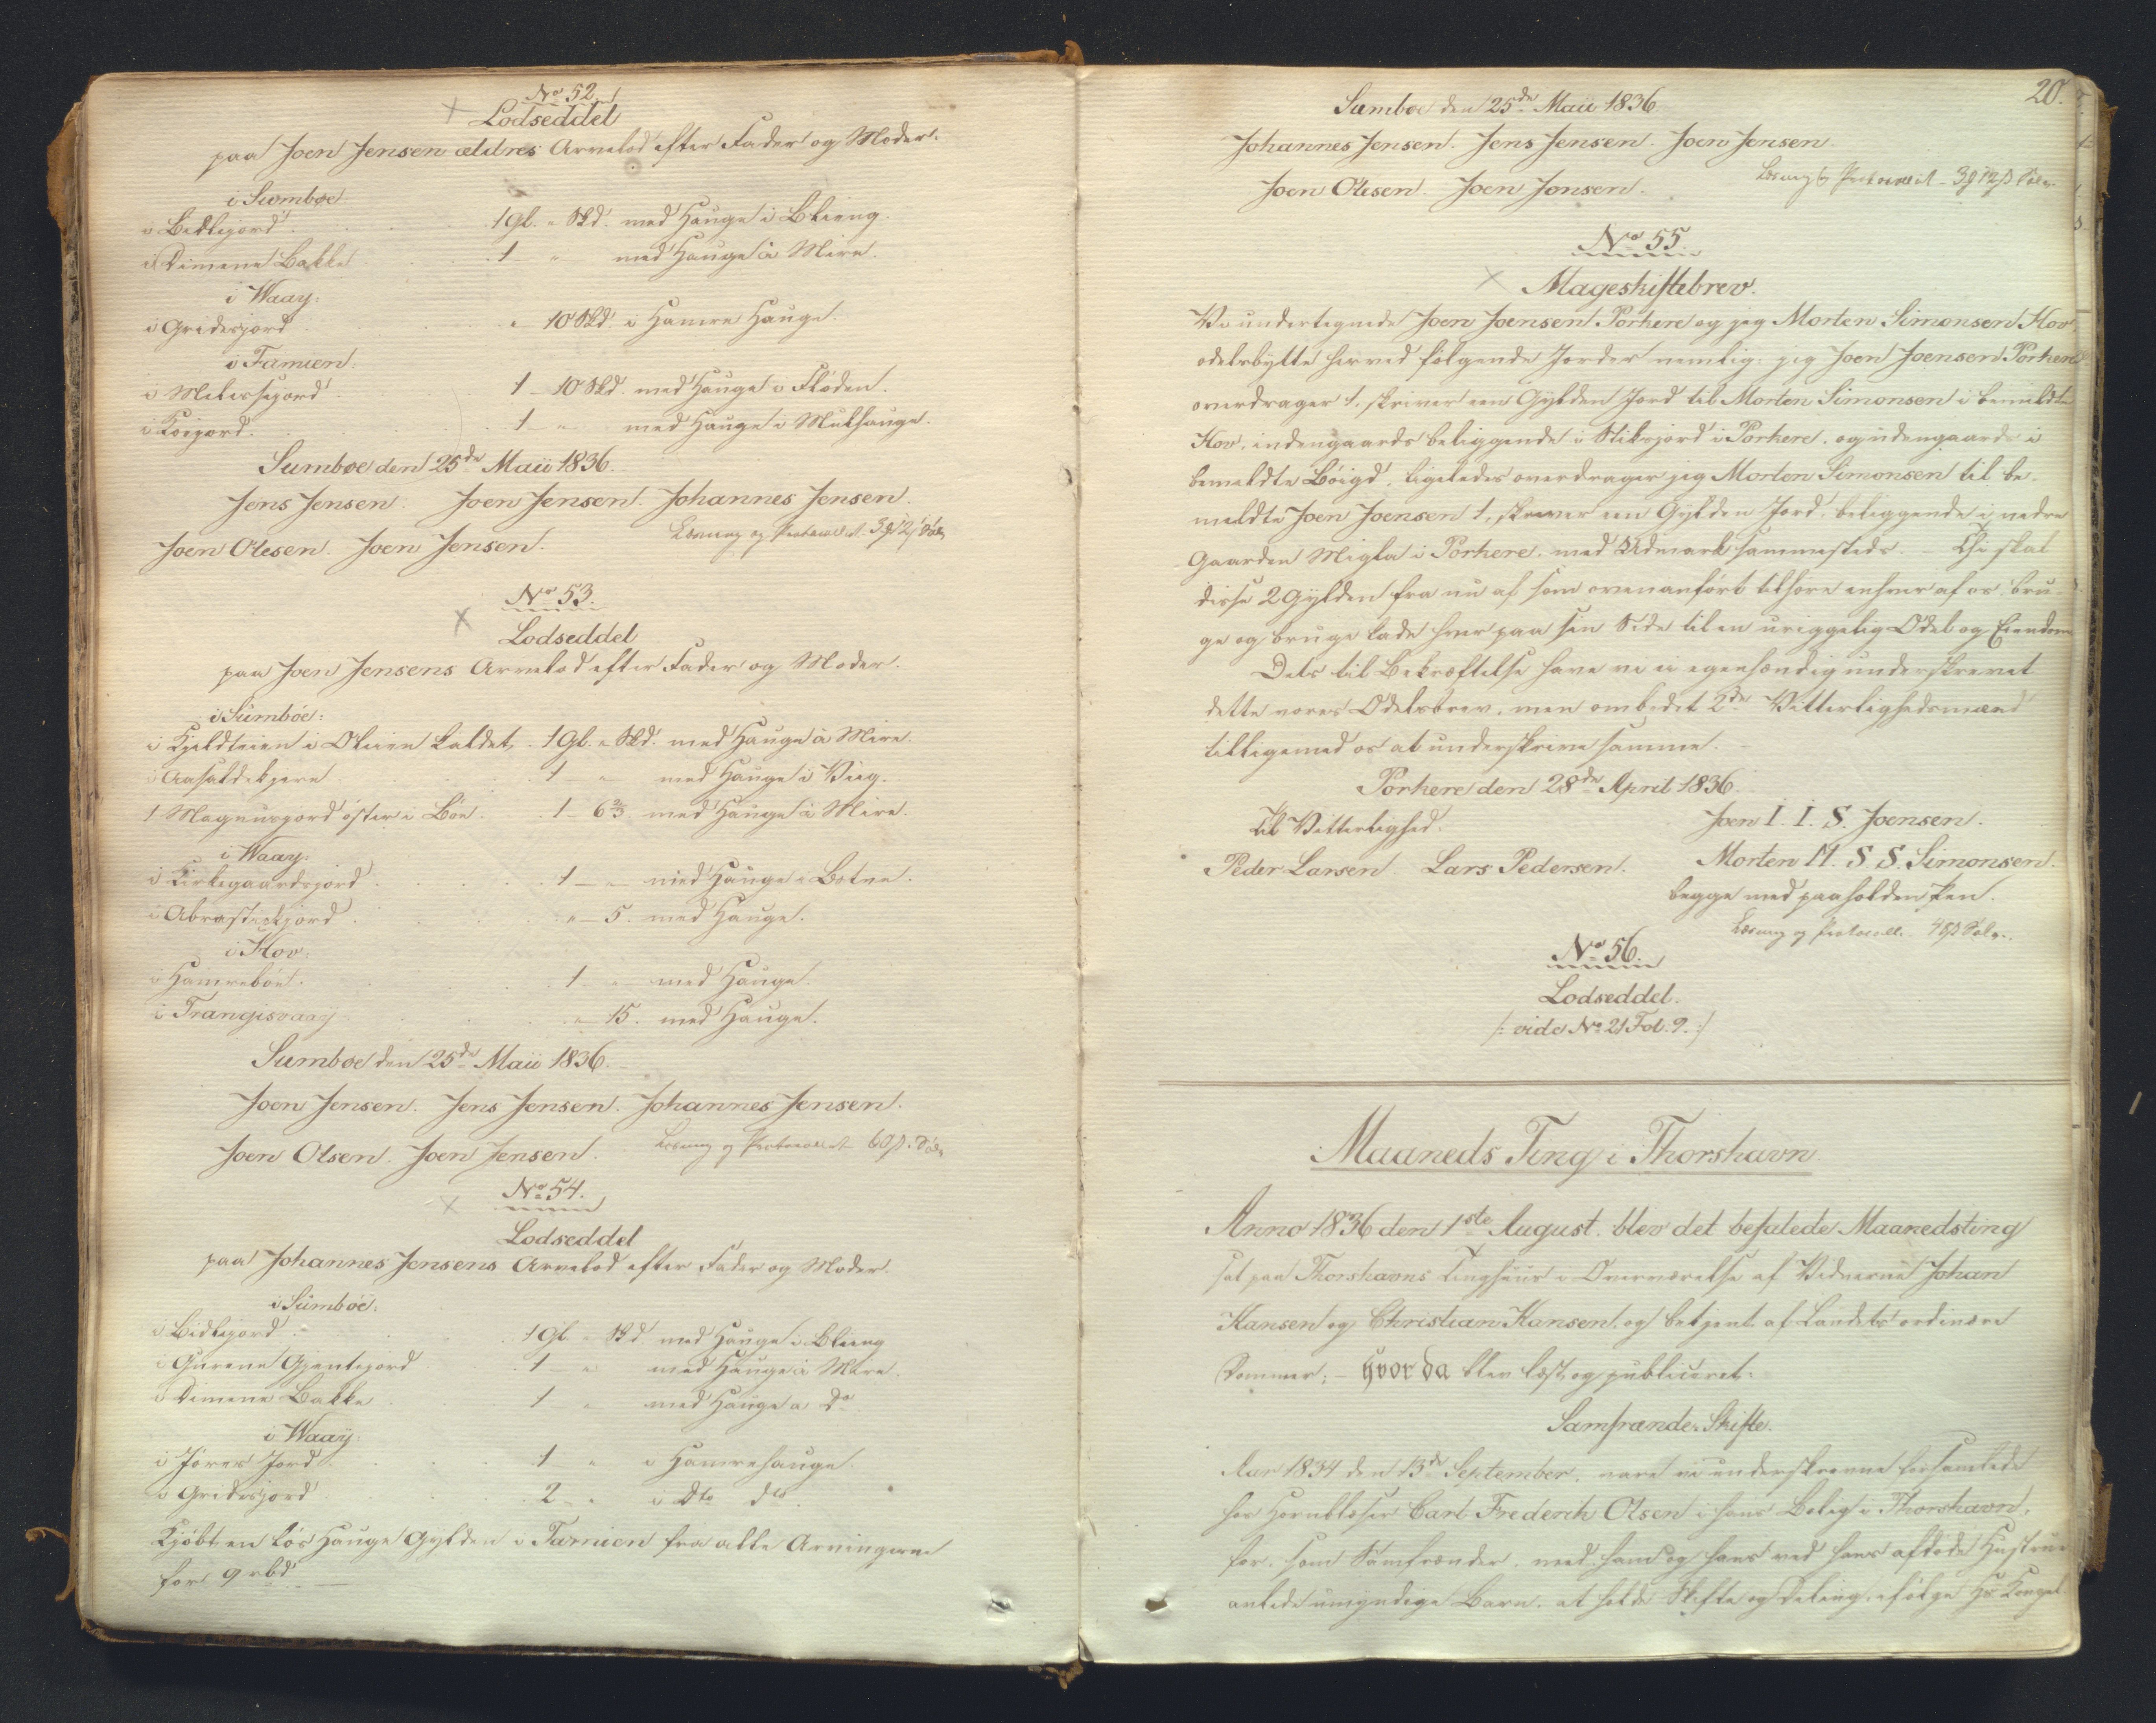 No 52.
Lodseddel
paa Joen Jensen ældres Arvelod efter Fader og Moder.
i Sumboe
i Bidlejord 1 Gl. " Skd. med Hauge i Blieng.
i Dimene Bakke 1 — " med Hauge a Mire.
i Waay:
i Gridesjord " 10 Skd. i Hamre Hauge.
i Famien:
i Melessejord 1 — 10 Skd. med Hauge i Fløden.
i Koejord. 1 — " med Hauge i Mulhauge.
Sumboe den 25de Maii 1836.
Jens Jensen. Joen Jensen. Johannes Jensen.
Joen Olesen. Joen Jensen. Læsning og Protocoll.
No 53.
Lodseddel
paa Joen Jensens Arvelod efter Fader og Moder.
i Sumböe:
i Kjeldteien i Oleien kaldet 1 Gl. " Skd. med Hauge a Mire.
1 — " med Hauge i Vieg.
i Magnusjord öster i Böe. 1 — 6 2/3 med Hauge a Mire.
i Waay:
i Kirkegaardsjord 1 — " med Hauge i Botne.
i Abrastekjord " — 5. med Hauge.
i Hov:
i Hamreböe. 1 — " med Hauge.
i Trangisvaay " — 15. med Hauge.
Sumboe den 25de Maii 1836.
Joen Jensen. Jens Jensen. Johannes Jensen.
Joen Olsen. Joen Jensen. Læsning og Protocoll.
No 54.
Lodseddel
paa Johannes Jensens Arvelod efter Fader og Moder.
i Sumböe:
i Bidlejord 1 Gl. " Skd. med Hauge i Blieng
i Gurene Gjentejord 1 — " med Hauge a Mire.
i Dimene Bakke 1 " med Hauge a Do
i Waay:
i Jores Jord 1 " i Hamrehauge.
i Gridesjord 2 " i Dto dto
Kjöbt en lös Hauge Gylden i Famien fra alle Arvingerne
for 9 rbd.
20.
Sumboe den 25de Maii 1836.
Johannes Jensen. Jens Jensen. Joen Jensen.
Joen Olesen. Joen Jensen. Læsning og Protocoll.
No 55.
Mageskiftebrev.
Vi undertegnede Joen Joensen Porkere og jeg Morten Simonsen Hov
odelsbytte herved følgende Jorder nemlig: jeg Joen Joensen Porkere
overdrager 1, skriver een Gylden Jord til Morten Simonsen i bemeldte
Hov, indengaards beliggende i Stiksjord i Porkere, og udengaards i
bemeldte Böigd. ligeledes overdrager jeg Morten Simonsen til be-
meldte Joen Joensen 1, skriver een Gylden Jord, beliggende i nedre
Gaarden Migla i Porkere, med Udmark sammesteds. Thi skal
disse 2 Gylden fra nu af som ovenanført tilhøre enhver af os bru-
ge og bruge lade hver paa sin Side til en uriggelig Odel og Eiendom
Dets til Bekræftelse have vi ei egenhændig underskrevet
dette vores Odelsbrev, men ombedet 2de Vitterlighedsmænd
tilligemed os at underskrive samme.
Porkere den 28de April 1836.
Til Vitterlighed. Joen I. I. S. Joensen.
Peder Larsen Lars Pedersen. Morten M. S S. Simonsen.
begge med paaholden Pen.
Læsning og Protocoll. 48 s Sølv.
No 56.
Lodseddel.
/: vide No 21 Fol. 9. :/
Maaneds Ting i Thorshavn
Anno 1836 den 1ste August. blev det befalede Maanedsting
sat paa Thorshavns Tinghuus i Overværelse af Vidnerne Johan
Hansen og Christian Hansen, og betjent af Landets ordinære
Dommer; — Hvor da blev læst og publiceret:
Samfrænde-Skifte.
Aar 1834 den 13de September, vare vi underskrevne forsamlede
hos Hornblæser Carl Frederik Olsen i hans Bolig i Thorshavn,
for, som Samfrænder, med ham og hans ved hans afdøde Hustrue
avlede umyndige Barn, at holde Skifte og Deling, ifølge Hs Kongel.